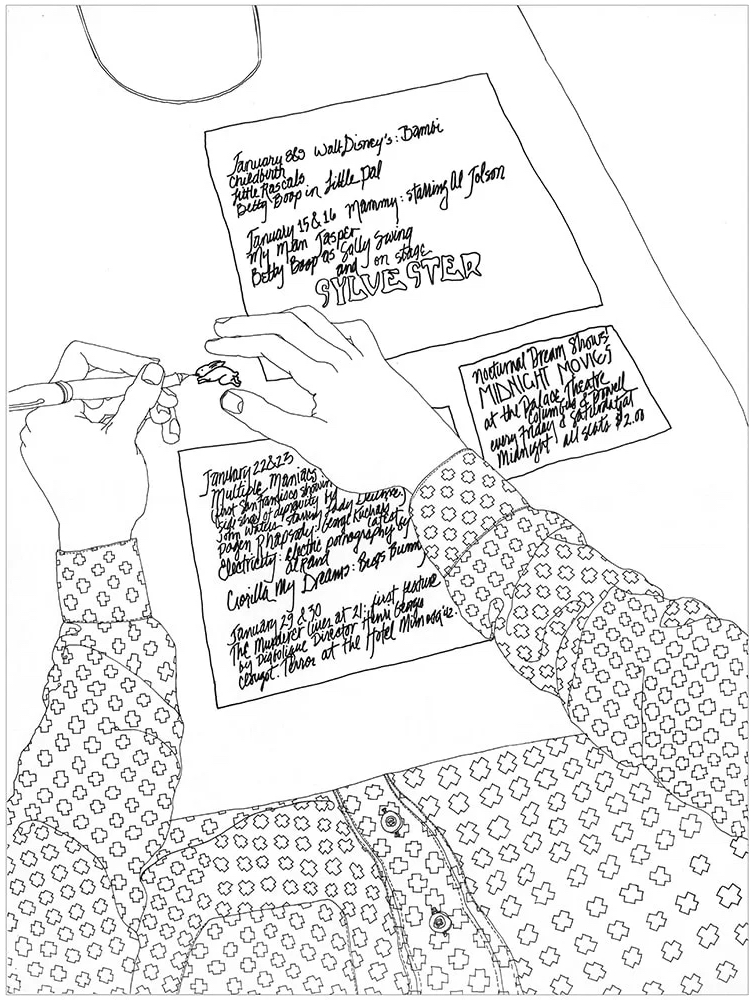 January 8&9 Walt Disney's: Bambi
Childbirth
Little Rascals
Betty Boop in Little Pal
January 15 & 16 Mammy: starring Al Jolson
My Man Jasper
Betty Boop as Sally Swing
and on stage
SYLVESTER
Nocturnal Dream Shows'
MIDNIGHT MOVIES
at the Palace Theatre
Columbus & Powell
every Friday & Saturday at
Midnight all seats $2.00
January 22&23
Multiple Maniacs
first San Francisco showing
of depravity by
John Waters starring Lady Divine.
Pagen Rhapsody: George Kuchars
latest
Electricity: Electric pornography by
Al Rand
Gorilla My Dreams: Bugs Bunny
January 29 & 30
The Murderer Lives at 21: first feature
by Diabolique Director Henri George
Clougot. Terror at the Hotel Mimosa '42.